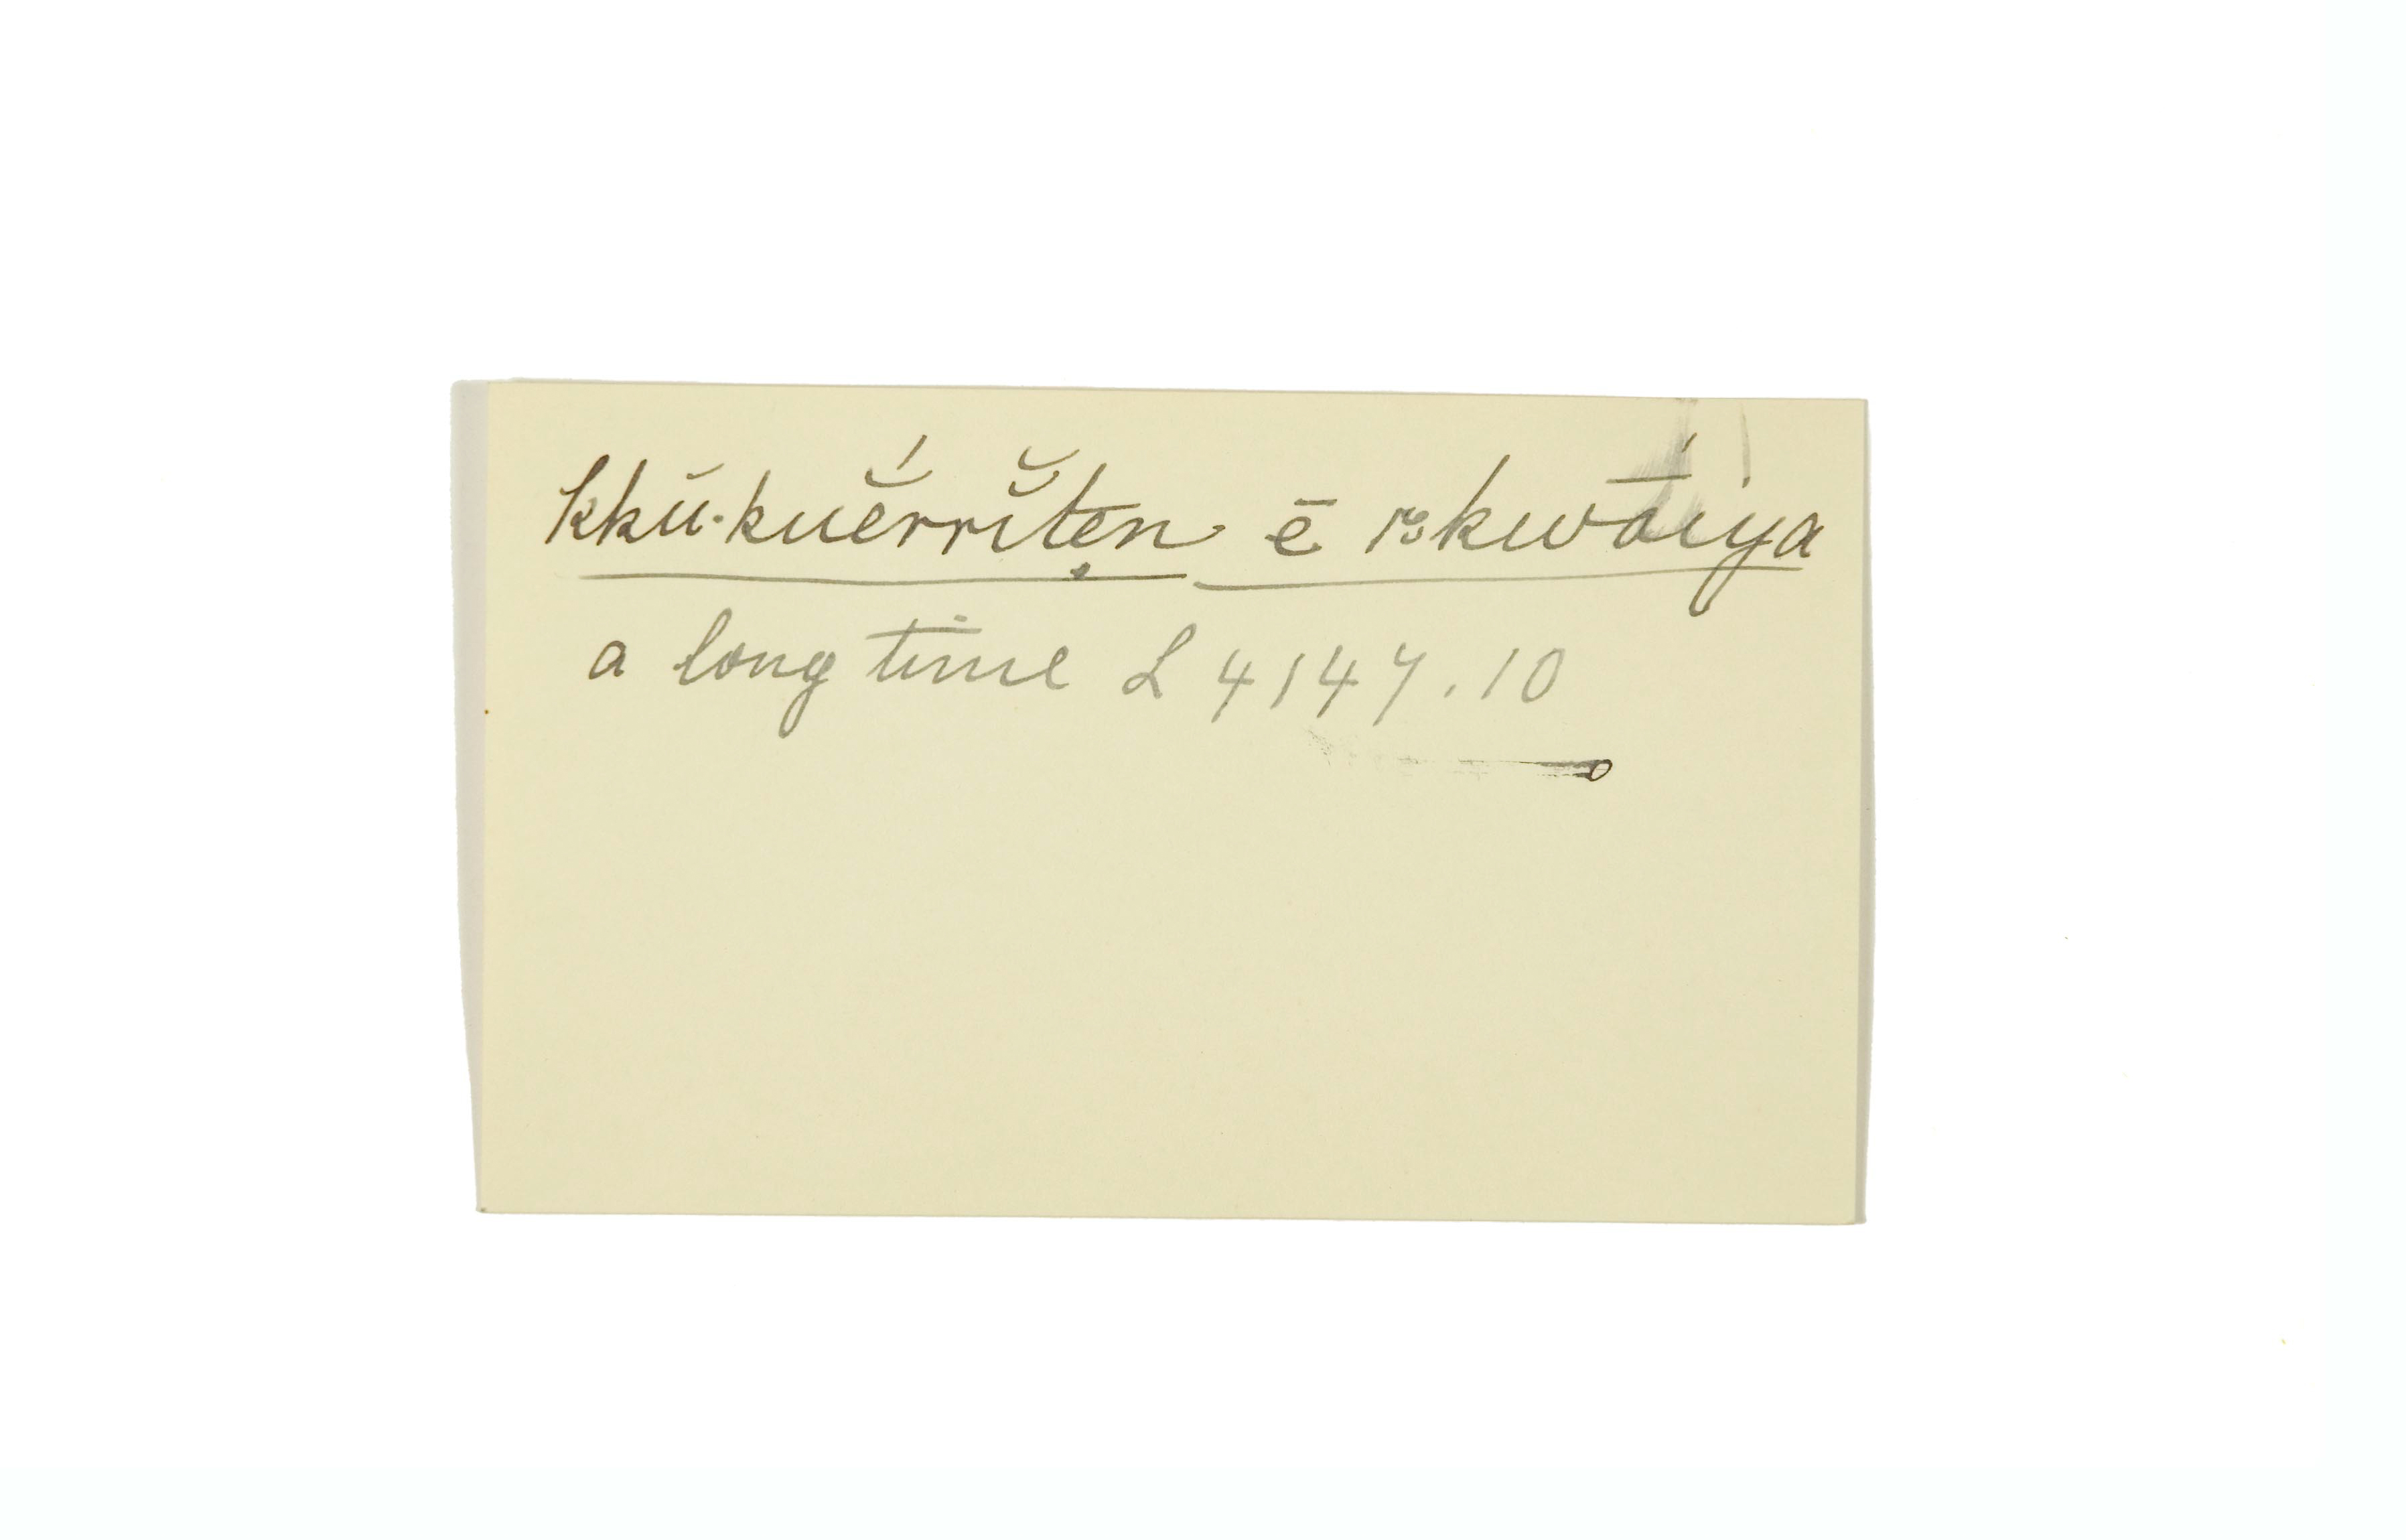 kkŭ-kuĕ́rrĭt̆en ē ɲkwā́iya
a long time L 4147.10